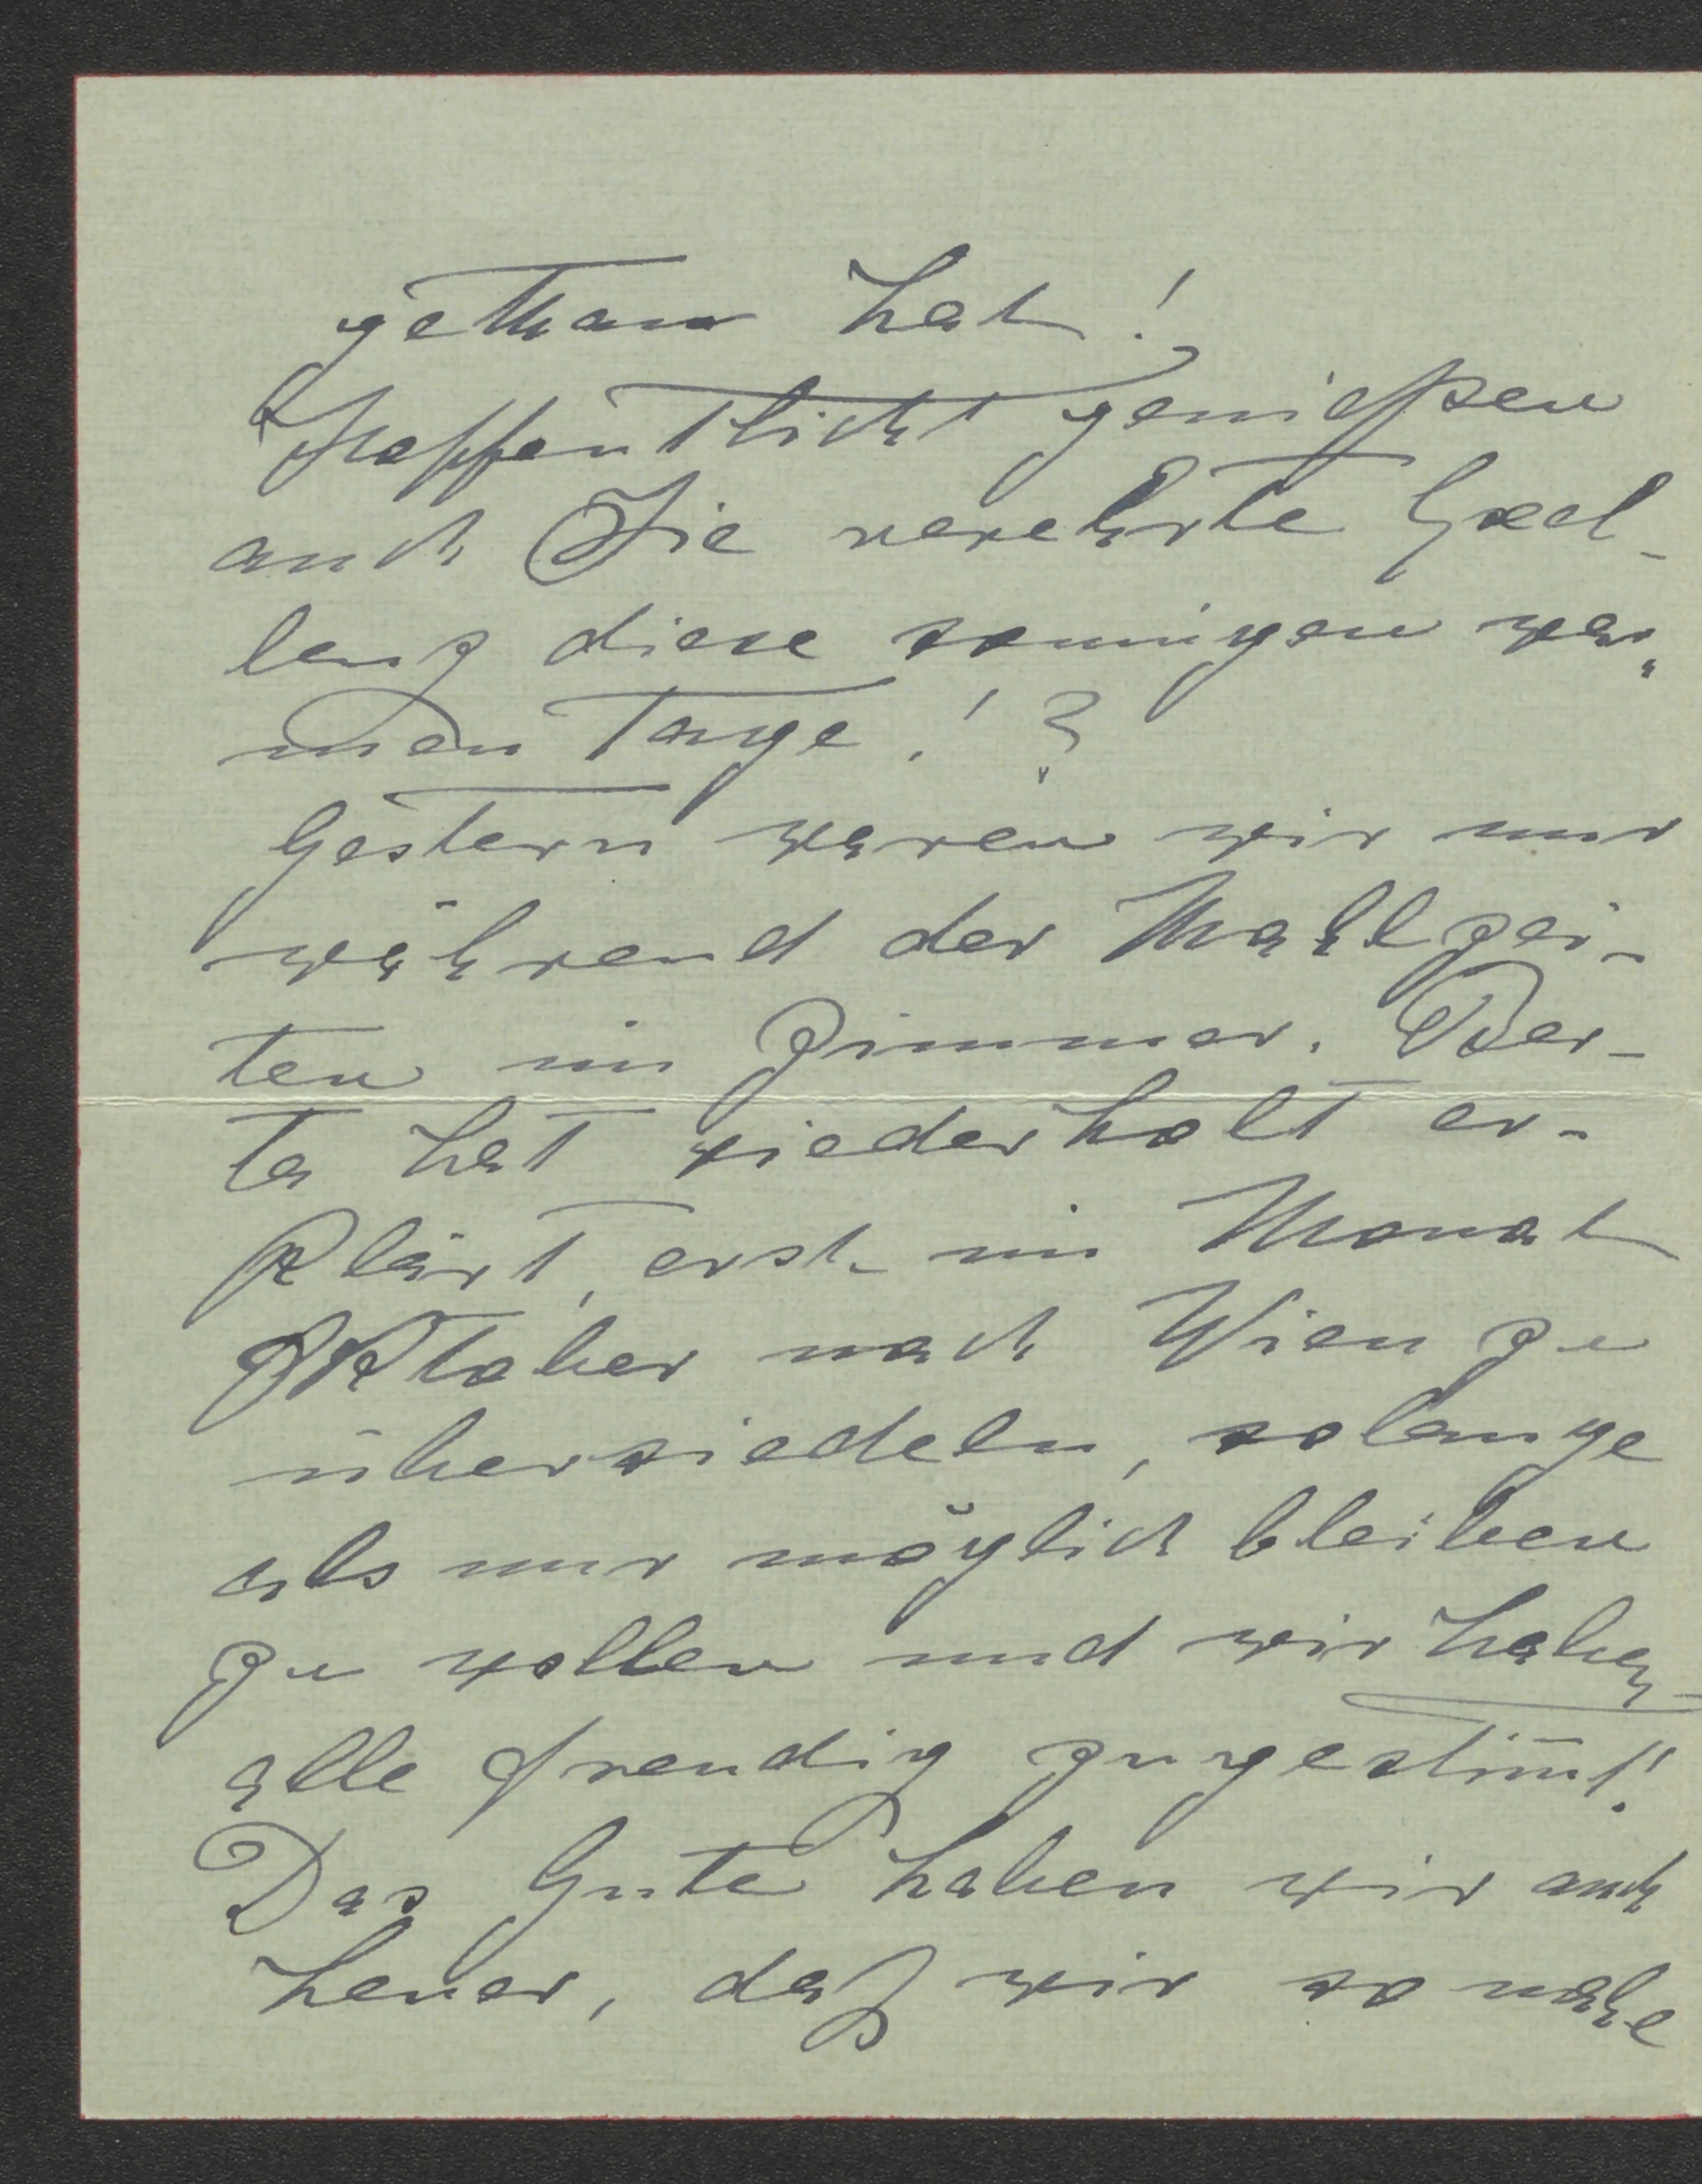 gethan hat!
Hoffentlicht genießen
auch Sie verehrte Excel-
lenz diese sonnigen war„
men Tage!?
Gestern waren wir nur
während der Mahlzei-
ten im Zimmer. Ber-
ta hat wiederholt er-
klärt, erst im Monat
Oktober nach Wien zu
übersiedeln, solange
als nur möglich bleiben
zu wollen und wir haben
alle freudig zugestim̅t!
Das Gute haben wir auch
heuer, daß wir so nahe